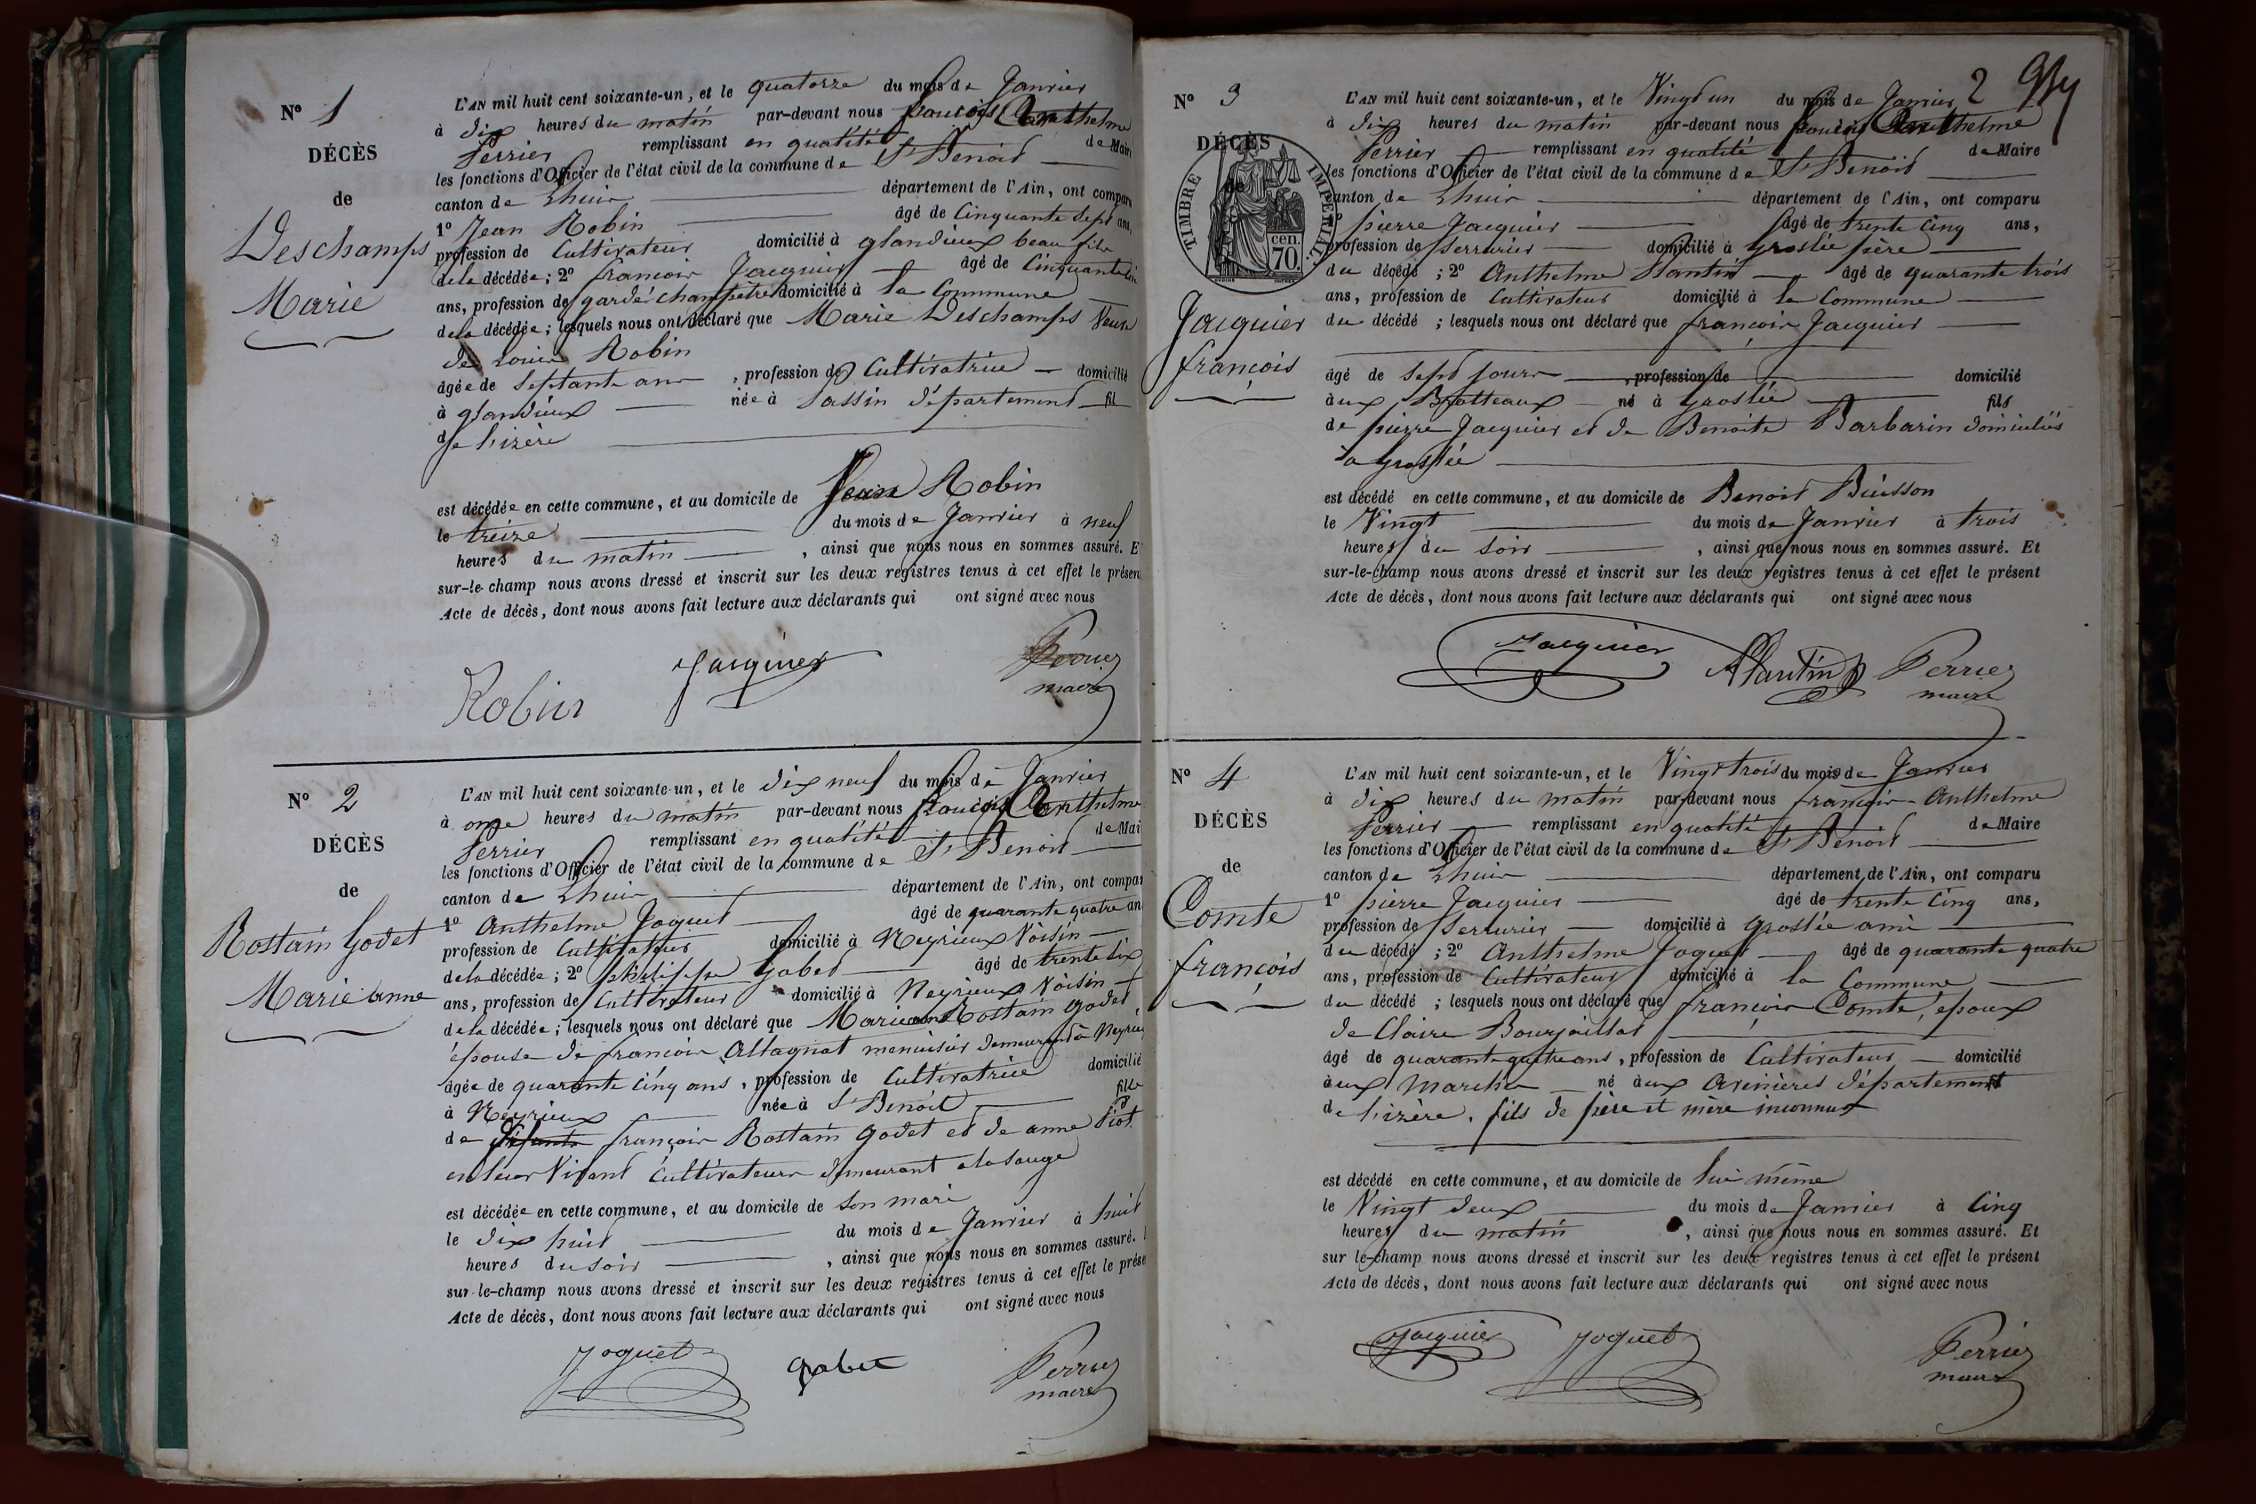 N° 1
DÉCÈS
de
Deschamps
Marie
L'AN mil huit cent soixante-un, et le quatorze du mois de Janvier
à dix heures du matin par-devant nous françois Anthelme
Perrier remplissant en qualité de Mair
les fonctions d'Officier de l'état civil de la commune de St Benoit
canton de Lhuis département de l'Ain, ont comparu
1° Jean Robin âgé de Cinquante Sept ans,
profession de Cultivateur domicilié à glandieux beau fils
de la décédée; 2° françois Jacquier âgé de Cinquante
ans, profession de garde champêtre domicilié à la Commune
de la décédée; lesquels nous ont déclaré que Marie Deschamps Veuve
de Louis Robin
âgée de Septante ans, profession de Cultivatrice domicilié
à glandieux née à Passin département fil
de lizère
est décédée en cette commune, et au domicile de Jean Robin
le treize du mois de Janvier à neuf
heures du matin, ainsi que nous nous en sommes assuré. E
sur-le-champ nous avons dressé et inscrit sur les deux registres tenus à cet effet le présen
Acte de décès, dont nous avons fait lecture aux déclarants qui ont signé avec nous
Robin Jacquier Perrier
maire
N° 2
DÉCÈS
de
Rostain Godet
Marie anne
L'AN mil huit cent soixante-un, et le dix neuf du mois de Janvier
à onze heures du matin par-devant nous françois Anthelme
Perrier remplissant en qualité de Mai
les fonctions d'Officier de l'état civil de la commune de St Benoit
canton de Lhuis département de l'Ain, ont compar
1° Anthelme Joguet âgé de quarante quatre an
profession de Cultivateur domicilié à Neyrieux Voisin
de la décédée; 2° philippe Gabet âgé de trente six
ans, profession de Cultivateur domicilié à Neyrieux Voisin
de la décédée; lesquels nous ont déclaré que Marie anne Rostain godet
épouse de françois Allagnat menuisier demeurant à Neyrieu
âgée de quarante cinq ans, profession de Cultivatrice domicilié
à Neyrieux née à St Benoit fille
de défunts françois Rostain godet et de anne Piot
en leur Vivant Cultivateurs demeurant a la Sauge
est décédée en cette commune, et au domicile de son mari
le dix huit du mois de Janvier à huit
heures du soir, ainsi que nous nous en sommes assuré.
sur-le-champ nous avons dressé et inscrit sur les deux registres tenus à cet effet le prése
Acte de décès, dont nous avons fait lecture aux déclarants qui ont signé avec nous
Joguet gabet Perrier
maire
2
N° 3
DÉCÈS
de
TIMBRE IMPÉRIAL
70 cen.
Jacquier
françois
L'AN mil huit cent soixante-un, et le Vingt un du mois de Janvier
à dix heures du matin par-devant nous françois Anthelme
Perrier remplissant en qualité de Maire
les fonctions d'Officier de l'état civil de la commune de St Benoit
canton de Lhuis département de l'Ain, ont comparu
1° pierre Jacquier âgé de trente cinq ans,
profession de Serrurier domicilié à groslée père
du décédé; 2° Anthelme Plantin âgé de quarante trois
ans, profession de Cultivateur domicilié à la Commune
du décédé; lesquels nous ont déclaré que françois Jacquier
âgé de Sept jours, profession de domicilié
aux Brotteaux né à groslée fils
de pierre Jacquier et de Benoite Barbarin domiciliés
à groslée
est décédé en cette commune, et au domicile de Benoit Buisson
le Vingt du mois de Janvier à trois
heures du soir, ainsi que nous nous en sommes assuré. Et
sur-le-champ nous avons dressé et inscrit sur les deux registres tenus à cet effet le présent
Acte de décès, dont nous avons fait lecture aux déclarants qui ont signé avec nous
Jacquier APlantin Perrier
maire
N° 4
DÉCÈS
de
Comte
françois
L'AN mil huit cent soixante-un, et le Vingt trois du mois de Janvier
à dix heures du matin par-devant nous françois Anthelme
Perrier remplissant en qualité de Maire
les fonctions d'Officier de l'état civil de la commune de St Benoit
canton de Lhuis département de l'Ain, ont comparu
1° pierre Jacquier âgé de trente cinq ans,
profession de Serrurier domicilié à groslée ami
du décédé; 2° Anthelme Joguet âgé de quarante quatre
ans, profession de Cultivateur domicilié à la Commune
du décédé; lesquels nous ont déclaré que françois Comte, époux
de Claire Bourjaillat
âgé de quarante quatre ans, profession de Cultivateur domicilié
aux Marches né aux Avenières département
de lizère, fils de père et mère inconnus
est décédé en cette commune, et au domicile de lui même
le Vingt deux du mois de Janvier à Cinq
heures du matin, ainsi que nous nous en sommes assuré. Et
sur le-champ nous avons dressé et inscrit sur les deux registres tenus à cet effet le présent
Acte de décès, dont nous avons fait lecture aux déclarants qui ont signé avec nous
Jacquier Joguet Perrier
maire